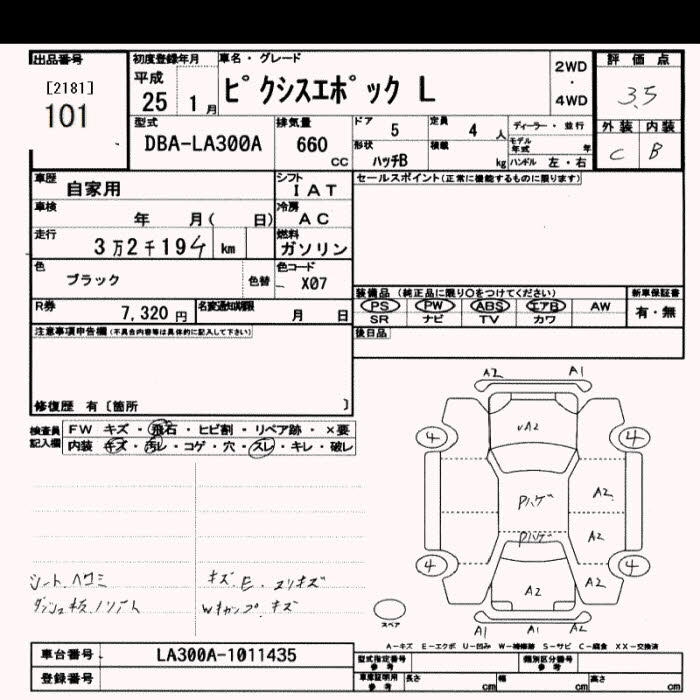 出品番号 初度登録年月 車名・グレード 評価点
[2181] 平成 2WD
101 25 1月 ピクシスエポック L ・ 3.5
4WD
型式 排気量 ドア 定員 ディーラー・並行 外装 内装
DBA-LA300A 660 5 4 人 モデル年式 年 C B
CC 形状 積載
ハッチB kg ハンドル 左・右
車歴 シフト セールスポイント(正常に機能するものに限ります)
自家用 IAT
車検 冷房
年 月( 日) AC
走行 燃料
3万2千194 km ガソリン
色 色コード
ブラック 色替 X07
装備品(純正品に限り○をつけてください) 新車保証書
R券 名変通知期限 PS PW ABS エアB AW 有・無
7,320円 月 日 SR ナビ TV カワ
注意事項申告欄(不具合内容等は具体的に記入して下さい) 後日品
修復歴 有〔箇所 〕
検査員記入欄 FW キズ・飛石・ヒビ割・リペア跡・×要
内装 キズ・汚レ・コゲ・穴・スレ・キレ・破レ
A2 A1
4 A2 4
Pハゲ A2
Pハゲ A2
4 4
A2 A2
A1 A1 A2
スペア
シート、ヘコミ キズ、E、スリキズ
Wキャップ キズ
A-キズ E-エクボ U-凹み W-補修跡 S-サビ C-腐食 XX-交換済
車台番号 LA300A-1011435 型式指定番号 参考 類別区分番号 参考
登録番号 車庫証明用 参考 長さ cm 幅 cm 高さ cm